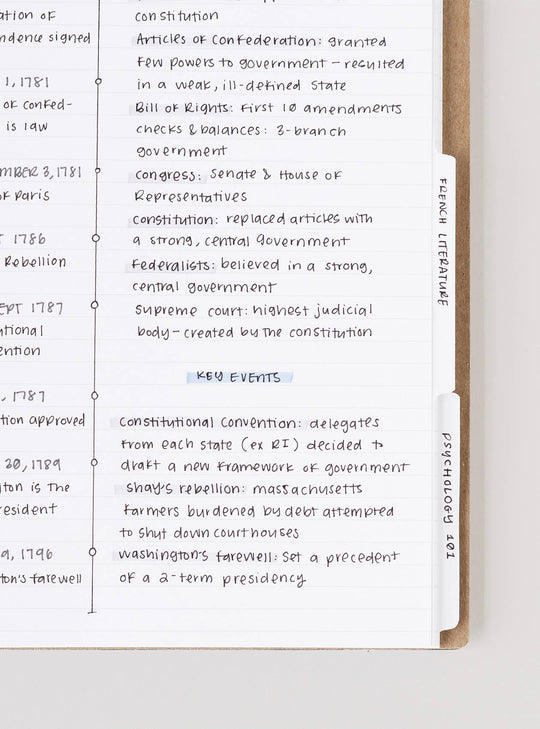 ation of
ndence signed
1, 1781
of confed-
is law
MBER 3, 1781
of Paris
T 1786
Rebellion
EPT 1787
utional
ention
, 1787
tion approved
20, 1789
gton is The
resident
9, 1796
ton's farewell
constitution
Articles of Confederation: granted
few powers to government - resulted
in a weak, ill-defined state
Bill of Rights: first 10 amendments
checks & balances: 3-branch
government
Congress: Senate & House of
Representatives
Constitution: replaced articles with
a strong, central government
Federalists: believed in a strong,
central government
Supreme court: highest judicial
body - created by the constitution
KEY EVENTS
Constitutional Convention: delegates
from each state (ex RI) decided to
draft a new framework of government
Shay's rebellion: massachusetts
farmers burdened by debt attempted
to shut down courthouses
Washington's farewell: set a precedent
of a 2-term presidency
FRENCH LITERATURE
PSYCHOLOGY 101